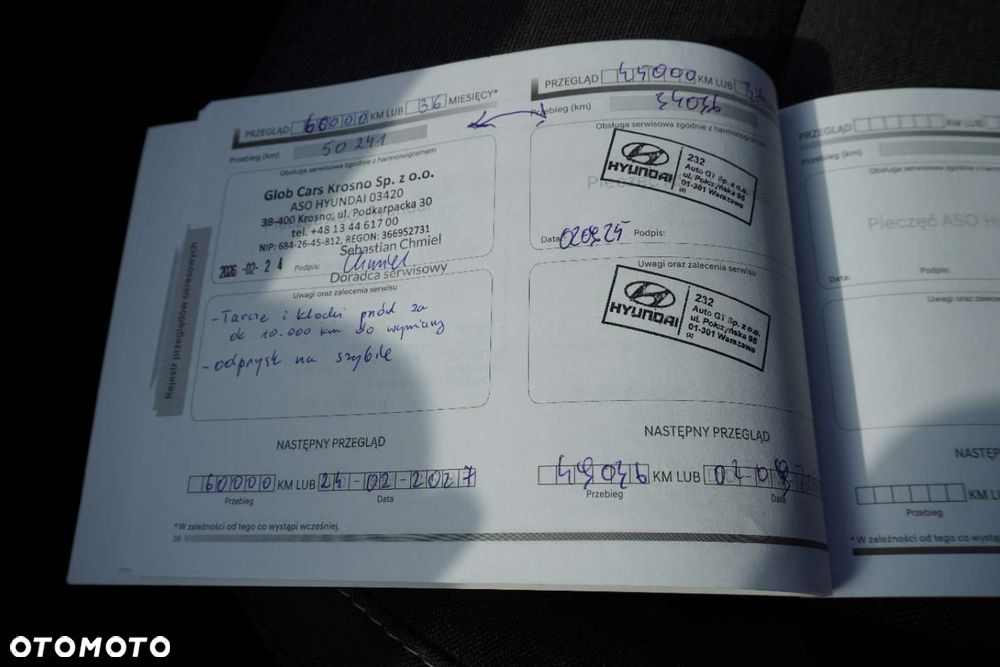 PRZEGLĄD 60000 KM LUB 36 MIESIĘCY*
Przebieg (km) 50 241
Obsługa serwisowa zgodnie z harmonogramem
Glob Cars Krosno Sp. z o.o.
ASO HYUNDAI 03420
38-400 Krosno, ul. Podkarpacka 30
tel. +48 13 44 617 00
NIP: 684-26-45-812, REGON: 366952731
Sebastian Chmiel
2026 -02- 24 Podpis: Chmiel
Doradca serwisowy
Uwagi oraz zalecenia serwisu
- Tarcze i klocki przód za
ok 10.000 km do wymiany
- odprysk na szybie
NASTĘPNY PRZEGLĄD
60000 KM LUB 24-02-2027
Przebieg Data
*W zależności od tego co wystąpi wcześniej.
38
Rejestr przeglądów okresowych
PRZEGLĄD KM LUB
Przebieg (km) 34036
Obsługa serwisowa zgodnie z harmonogramem
HYUNDAI
232
Auto GT Sp. z o.o.
ul. Połczyńska 95
01-301 Warszawa
Data: Podpis:
Uwagi oraz zalecenia serwisu
HYUNDAI
232
Auto GT Sp. z o.o.
ul. Połczyńska 95
01-301 Warszawa
NASTĘPNY PRZEGLĄD
49036 KM LUB
Przebieg Data
PRZEGLĄD KM LUB
Przebieg (km)
Obsługa serwisowa
Pieczęć ASO
Data: Podpis:
Uwagi oraz
NASTĘP
KM L
Przebieg
*W zależności od tego co wystąp
OTOMOTO